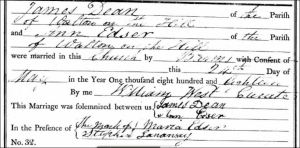 James Dean of the Parish
of Walton on the Hill
and Ann Edser of the Parish
of Walton on the Hill
were married in this Church by Banns with Consent of
this Day of
May in the Year One thousand eight hundred and eighteen
By me William West Curate
This Marriage was solemnized between us James Dean
Ann Edser
In the Presence of The Mark of Maria Edser
No. 32.